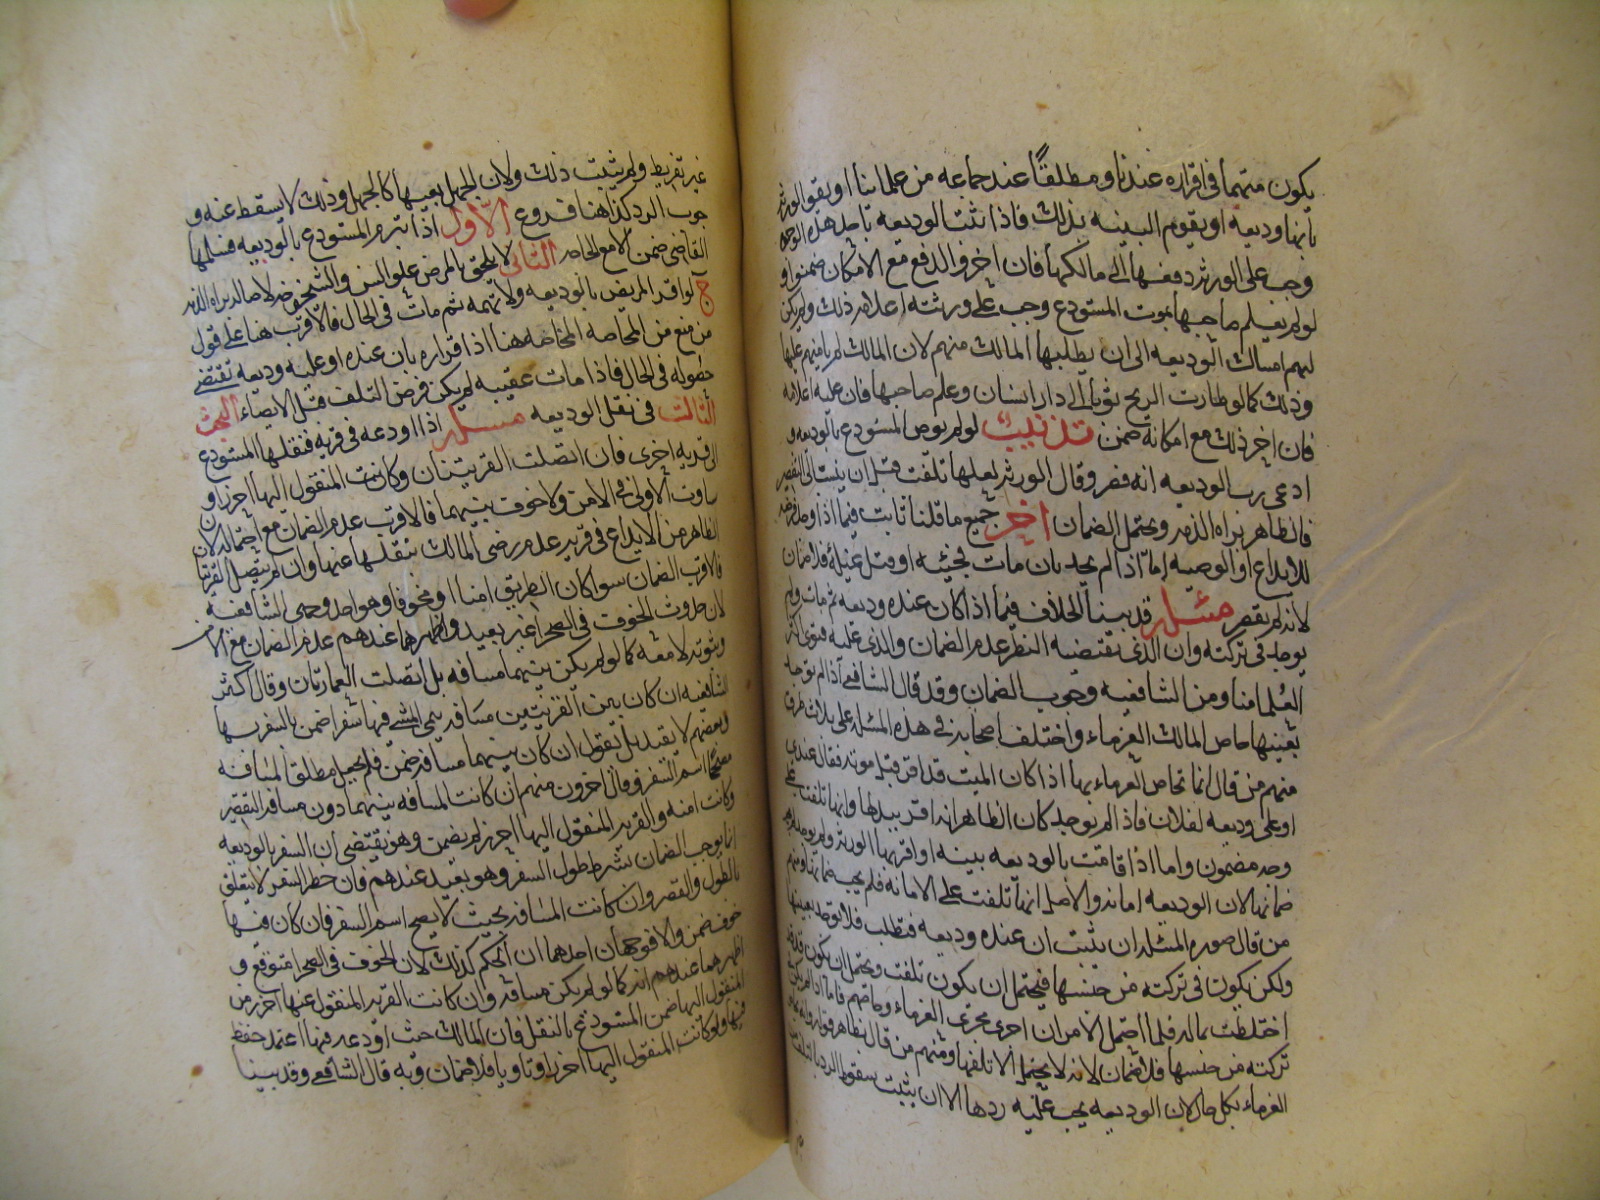 يكون متهما في اقراره عندنا ومطلقًا عند جماعه من علمائنا او يقر الورثه
بانها وديعه او يقوم البينه بذلك فاذا ثبت الوديعه باحد هذه الوجوه
وجب على الورثه دفعها الى مالكها فان اخر والدفع مع الامكان ضمنوا و
لو لم يعلم صاحبها بموت المستودع وجب على ورثته اعلامه ذلك ولم يكن
لهم امساك الوديعه الى ان يطلبها المالك منهم لان المالك لم يامنهم عليها
وذلك كما لو طارت الريح ثوبا الى دار انسان وعلم صاحبها فان عليه اعلامه
فان اخر ذلك مع امكانه ضمن تذنيب لو لم يوص المستودع بالوديعه و
ادعى رب الوديعه انه قصر وقال الورثه لعلها تلفت قبل ان ينسب الى التقصير
فالظاهر براه الذمه ويحتمل الضمان اخر جميع ما قلنا ثابت فيما اذا وجد فرصه
للايداع او الوصيه اما اذا لم يجد بان مات فجئيه او قتل غيلة فلا ضمان
لانه لم يقصر مسئله قد بينا الخلاف فيما اذا كان عنده وديعه ثم مات ولم
يوجد في تركته وان الذي يقتضيه النظر عدم الضمان والذي عليه فتوى اكثر
العلما منا ومن الشافعيه وجوب الضمان وقد قال الشافعي اذا لم يوجد
بعينها حاص المالك الغرماء واختلف اصحابه في هذه المسئله على ثلاث طرق
منهم من قال انما تحاص الغرماء بها اذا كان الميت قد اقر قبل موته فقال عندي
او على وديعه لفلان فاذا لم يوجد كان الظاهر انه اقر ببدلها وانها تلفت على
وجه مضمون واما اذا قامت بالوديعه بينه او اقر بها الورثه ولم يوجد لم يجب
ضمانها لان الوديعه امانه والاصل انها تلفت على الامانه فلم يجب ضمانها ومنهم
من قال صوره المسئله ان يثبت ان عنده وديعه فتطلب فلا توجد بعينها
ولكن يكون في تركته من جنسها فيحتمل ان يكون تلفت ويحتمل ان يكون قد
اختلطت بماله فلما احتمل الامران اجرى مجرى الغرماء وحاصهم فاما اذا لم يكن في
تركته من جنسها فلا ضمان لانه لا يحتمل الا تلفها ومنهم من قال بظاهر قوله وانه يحاص
الغرماء بكل حال لان الوديعه يجب عليه ردها الا ان يثبت سقوط الرد بالتلف من
غير تفريط ولم يثبت ذلك ولان الجهل بعينها كالجهل وذلك لا يسقط عنه و
جوب الرد كذا هنا فروع الاول اذا تبرم المستودع بالوديعه فسلمها
القاضي ضمن الا مع الحاجه الثاني لا يلحق بالمرض علو السن والشيخوخه لاصاله براه الذمه
ج لو اقر المريض بالوديعه ولا تهمه ثم مات في الحال فالاقرب هنا على قول
من منع من المحاصه المحاصه هنا اذا اقراره بان عنده او عليه وديعه تقتضي
حصوله في الحال فاذا مات عقيبه لم يكن فرض التلف قبل الايصاء البحث
الثالث في نقل الوديعه مسئله اذا اودعه في قريه فنقلها المستودع
الى قريه اخرى فان اتصلت القريتان وكانت المنقول اليها احرز او
ساوت الاولى في الامن ولا خوف بينهما فالاقرب عدم الضمان مع احتماله لان
الظاهر من الايداع في قريه عدم رضى المالك بنقلها عنها وان لم يتصل القريتان
فالاقرب الضمان سوا كان الطريق امنا او مخوفا وهو احد وجهي الشافعيه
لان حدوث الخوف في الصحرا غير بعيد واظهرهما عندهم عدم الضمان مع الامن
وثبوته لا معه كما لو لم يكن بينهما مسافه بل اتصلت العمارتان وقال اكثر
الشافعيه ان كان بين القريتين مسافه يسمى المشي فيها سفرا ضمن بالسفر بها
وبعضهم لا يقيد بل يقول ان كان بينهما مسافه ضمن فلم يجعل مطلق المسافه
مصححا اسم السفر وقال اخرون منهم ان كانت المسافه بينهما دون مسافه التقصير
وكانت امنه والقريه المنقول اليها احرز لم يضمن وهو يقتضي ان السفر بالوديعه
انما يوجب الضمان بشرط طول السفر وهو بعيد عندهم فان خطر السفر لا يتعلق
بالطول والقصر وان كانت المسافه بحيث لا يصحح اسم السفر فان كان فيها
خوف ضمن والا فوجهان احدهما ان الحكم كذلك لان الخوف في الصحرا متوقع و
اظهرهما عندهم انه كما لو لم يكن مسافه وان كانت القريه المنقول عنها احرز من
المنقول اليها ضمن المستودع بالنقل فان المالك حيث اودعه فيها اعتمد حفظه
فيها ولو كانت المنقول اليها احرز او تساويا فلا ضمان وبه قال الشافعي وقد بينا